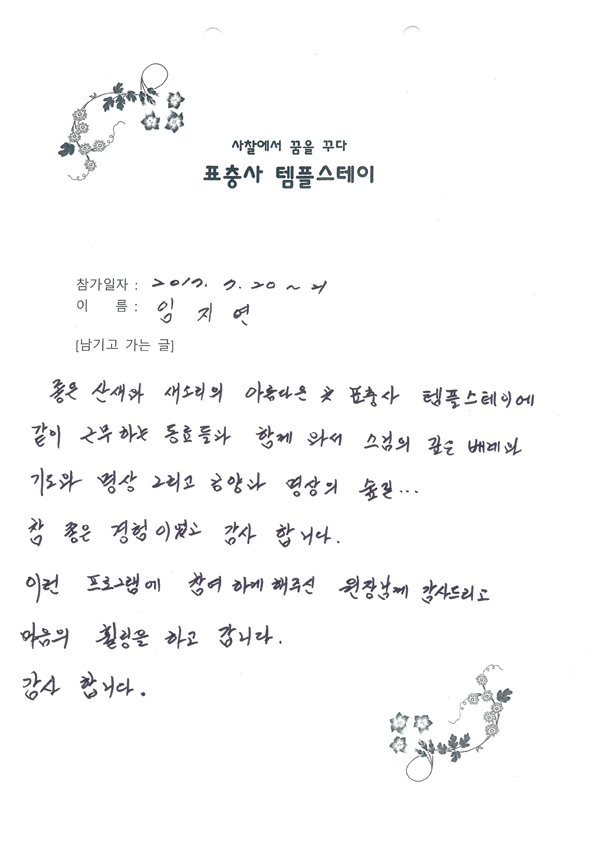 사찰에서 꿈을 꾸다
표충사 템플스테이
참가일자 : 2017. 7. 20 ~ 21
이 름 : 임 지 연
[남기고 가는 글]
좋은 산새와 새소리의 아름다운 표충사 템플스테이에
같이 근무하는 동료들과 함께 와서 스님의 깊은 배려와
기도와 명상 그리고 공양과 명상의 숲길...
참 좋은 경험이었고 감사 합니다.
이런 프로그램에 참여하게 해주신 원장님께 감사드리고
마음의 힐링을 하고 갑니다.
감사 합니다.